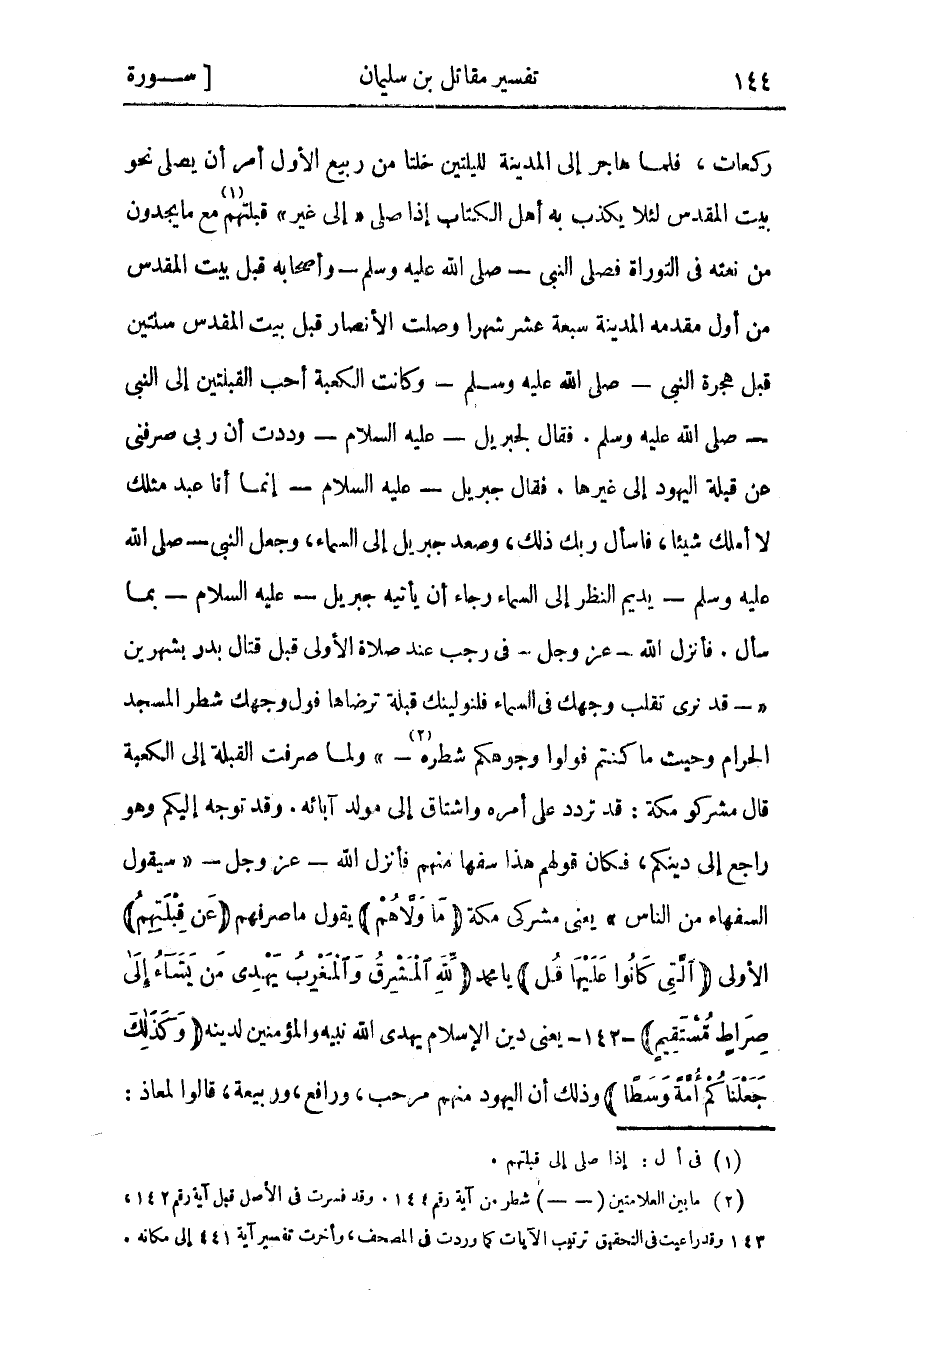 ١٤٤ تفسير مقاتل بن سليمان [ ســورة
ركعات ، فلمـا هاجر إلى المدينة لليلتين خلتا من ربيع الأول أمر أن يصلى نحو
بيت المقدس لئلا يكذب به أهل الكتاب إذا صلى « إلى غير » قبلتهم (١) مع مايجدون
من نعته فى التوراة فصلى النبى — صلى الله عليه وسلم — وأصحابه قبل بيت المقدس
من أول مقدمه المدينة سبعة عشر شهرا وصلت الأنصار قبل بيت المقدس سنتين
قبل هجرة النبى — صلى الله عليه وسـلم — وكانت الكعبة أحب القبلتين إلى النبى
— صلى الله عليه وسلم . فقال لجبريل — عليه السلام — وددت أن ربى صرفنى
عن قبلة اليهود إلى غيرها . فقال جبريل — عليه السلام — إنمـا أنا عبد مثلك
لا أملك شيئا ، فاسأل ربك ذلك ، وصعد جبريل إلى السماء ، وجعل النبى — صلى الله
عليه وسلم — يديم النظر إلى السماء رجاء أن يأتيه جبريل — عليه السلام — بمـا
سأل . فأنزل الله — عز وجل — فى رجب عند صلاة الأولى قبل قتال بدر بشهرين
« — قد نرى تقلب وجهك فى السماء فلنولينك قبلة ترضاها فول وجهك شطر المسجد
الحرام وحيث ما كنتم فولوا وجوهكم شطره (٢) — » ولمـا صرفت القبلة إلى الكعبة
قال مشركو مكة : قد تردد على أمره واشتاق إلى مولد آبائه . وقد توجه إليكم وهو
راجع إلى دينكم ، فكان قولهم هذا سفها منهم فأنزل الله — عز وجل — « سيقول
السفهاء من الناس » يعنى مشركى مكة ﴿ مَا وَلَّاهُمْ ﴾ يقول ماصرفهم ﴿ عَن قِبْلَتِهِمُ ﴾
الأولى ﴿ ٱلَّتِى كَانُوا عَلَيْهَا قُل ﴾ يا محمد ﴿ لِّلَّهِ ٱلْمَشْرِقُ وَٱلْمَغْرِبُ يَهْدِى مَن يَشَآءُ إِلَىٰ
صِرَاطٍ مُّسْتَقِيمٍ ﴾ -١٤٢- يعنى دين الإسلام يهدى الله نبيه والمؤمنين لدينه ﴿ وَكَذَٰلِكَ
جَعَلْنَاكُمْ أُمَّةً وَسَطًا ﴾ وذلك أن اليهود منهم مرحب ، ورافع ، وربيعة ، قالوا لمعاذ :
(١) فى أ ل : إذا صلى إلى قبلتهم .
(٢) مابين العلامتين ( — — ) شطر من آية رقم ١٤٤ . وقد فسرت فى الأصل قبل آية رقم ١٤٢ ،
١٤٣ وقد راعيت فى التحقيق ترتيب الآيات كما وردت فى المصحف ، وأخرت تفسير آية ٤٤١ إلى مكانه .